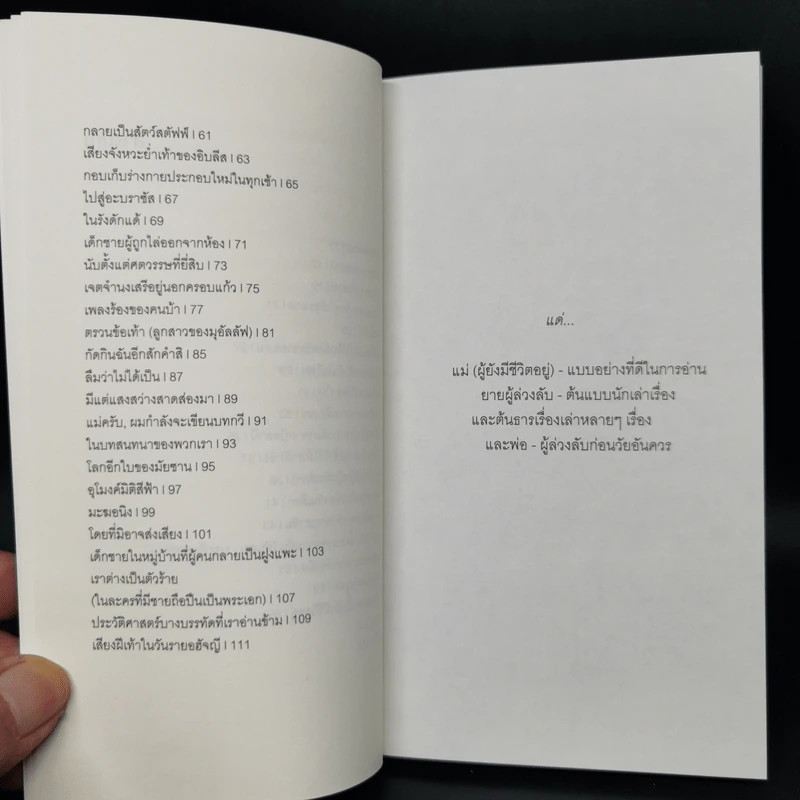 กลายเป็นสัตว์สตัฟฟ์ | 61
เสียงจังหวะย่ำเท้าของอิบลีส | 63
กอบเก็บร่างกายประกอบใหม่ในทุกเช้า | 65
ไปสู่อะบราซัส | 67
ในรังดักแด้ | 69
เด็กชายผู้ถูกไล่ออกจากห้อง | 71
นับตั้งแต่ศตวรรษที่ยี่สิบ | 73
เจตจำนงเสรีอยู่นอกครอบแก้ว | 75
เพลงร้องของคนบ้า | 77
ตรวนข้อเท้า (ลูกสาวของมุอัลลัฟ) | 81
กัดกินฉันอีกสักคำสิ | 85
ลืมว่าไม่ได้เป็น | 87
มีแต่แสงสว่างสาดส่องมา | 89
แม่ครับ, ผมกำลังจะเขียนบทกวี | 91
ในบทสนทนาของพวกเรา | 93
โลกอีกใบของมัยซาน | 95
อุโมงค์มิติสีฟ้า | 97
มะฆอนิง | 99
โดยที่มิอาจส่งเสียง | 101
เด็กชายในหมู่บ้านที่ผู้คนกลายเป็นฝูงแพะ | 103
เราต่างเป็นตัวร้าย
(ในละครที่มีชายถือปืนเป็นพระเอก) | 107
ประวัติศาสตร์บางบรรทัดที่เราอ่านข้าม | 109
เสียงฝีเท้าในวันรายอฮัจญี | 111
แด่...
แม่ (ผู้ยังมีชีวิตอยู่) - แบบอย่างที่ดีในการอ่าน
ยายผู้ล่วงลับ - ต้นแบบนักเล่าเรื่อง
และต้นธารเรื่องเล่าหลายๆ เรื่อง
และพ่อ - ผู้ล่วงลับก่อนวัยอันควร